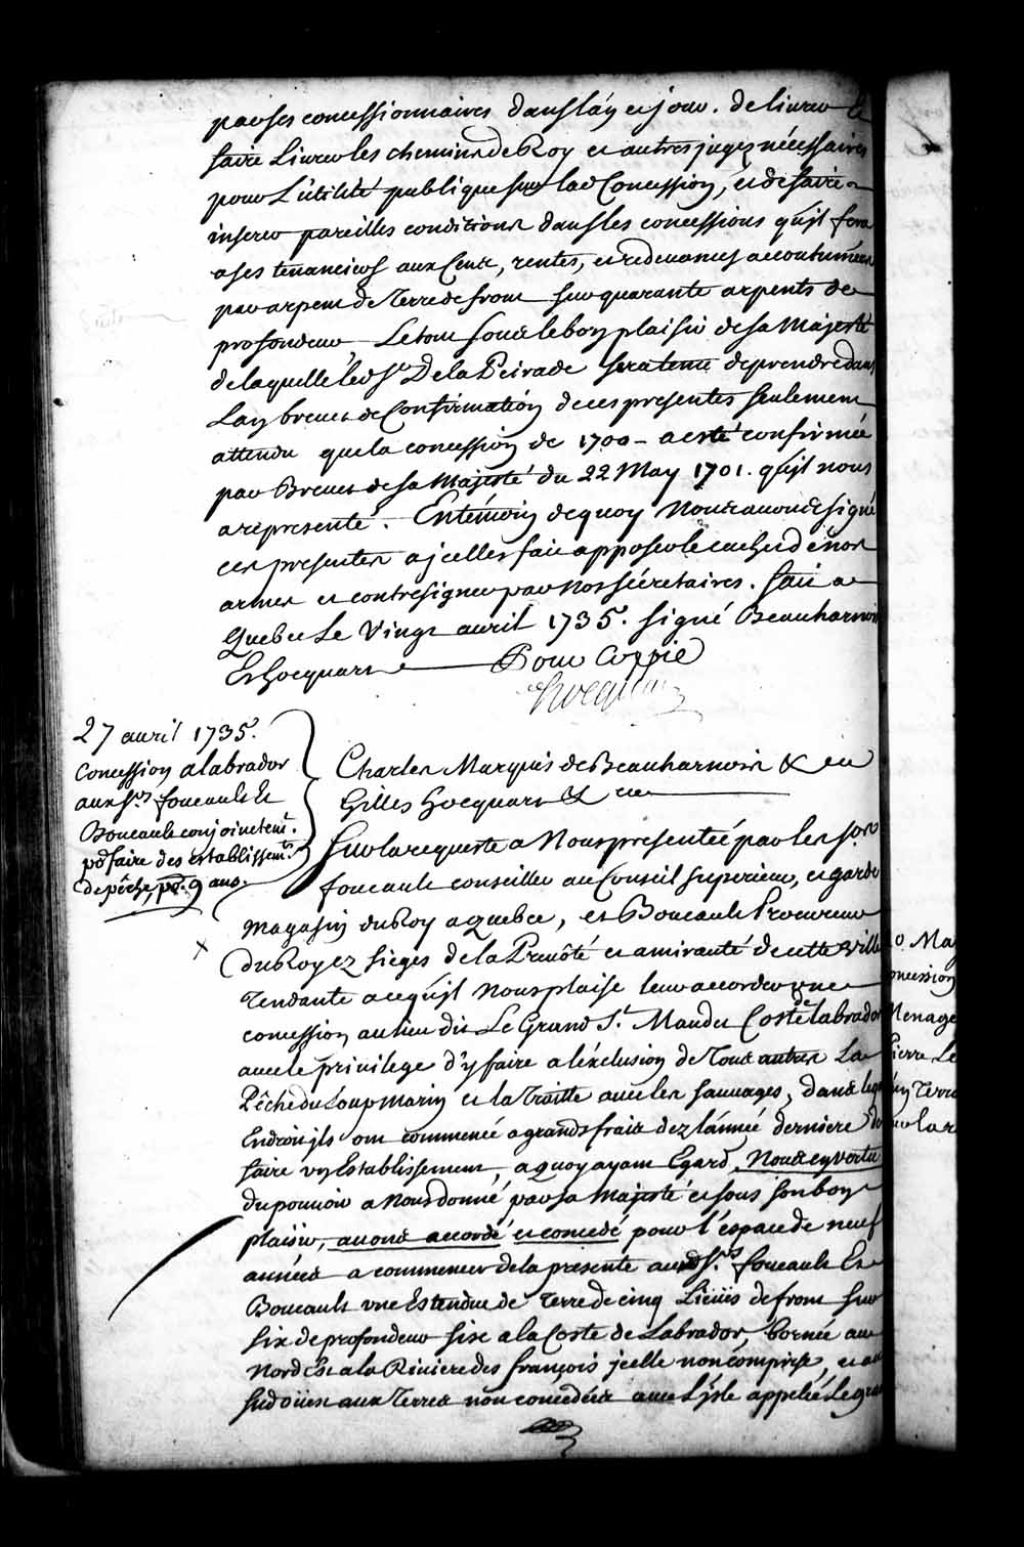 par ses concessionnaires dans l'an et jour. de livrer &
faire Livrer les chemins de Roy et autres jugez nécessaires
pour L'utilité publique sur lad Concession, et de faire
inserer pareilles conditions dans les concessions qu'jl fera
a ses tenanciers aux Cens, rentes, et redevances accoutumées
par arpent de Terre de front sur quarante arpents de
profondeur Le tout sous le bon plaisir de sa Majesté
de laquelle led Sr. De la Peirade sera tenu de prendre dans
L'an brevet de Confirmation de ces presentes seulement
attendu que la concession de 1700 - a esté confirmée
par Brevet de sa Majesté du 22 May 1701. qu'jl nous
a representé. En témoin de quoy Nous avons signé
ces presentes a jcelles fait apposer le cachet de nos
armes et contresigner par Nos sécretaires. fait a
Quebec Le Vingt avril 1735. signé Beauharnois
Et Hocquart Pour Coppie
Hocquart
27 avril 1735.
Concession a labrador
aux Srs foucault Et
Boucault conjoinctemt.
pr. faire des établissemts.
de pêche, pr. 9 ans.
Charles Marquis de Beauharnois &c
Gilles Hocquart &c
Sur la requeste a Nous presenteé par les Srs.
foucault conseiller au Conseil superieur, et garde
Magasin du Roy a Quebec, et Boucault Procureur
du Roy ez sieges de la Prevôté et amirauté de cette ville
Tendante a ce qu'jl Nous plaise leur accorder une
concession au lieu dit Le Grand St. Modet Coste de labrador
avec le privilege d'y faire a l'éxclusion de Tous autres La
Pêche du Loup Marin et la Traitte avec les sauvages, dans leq
Endroit jls ont commencé a grands frais dez l'année derniere de
faire un Establissement, a quoy ayant Egard, Nous en vertu
du pouvoir a Nous donné par sa Majesté et sous son bon
plaisir, avons accordé et concedé pour l'éspace de neuf
années a commencer de la presente auxd Srs. foucault Et
Boucault une Estendue de Terre de cinq Lieües de front sur
six de profondeur sise a la Coste de Labrador, bornée au
Nord Est a la Riviere des françois jcelle non comprise, et au
sud oüest aux Terres non concedées avec L'jsle appelée Le gran
0. May
oncession
Menage
Pierre Le
un Terre